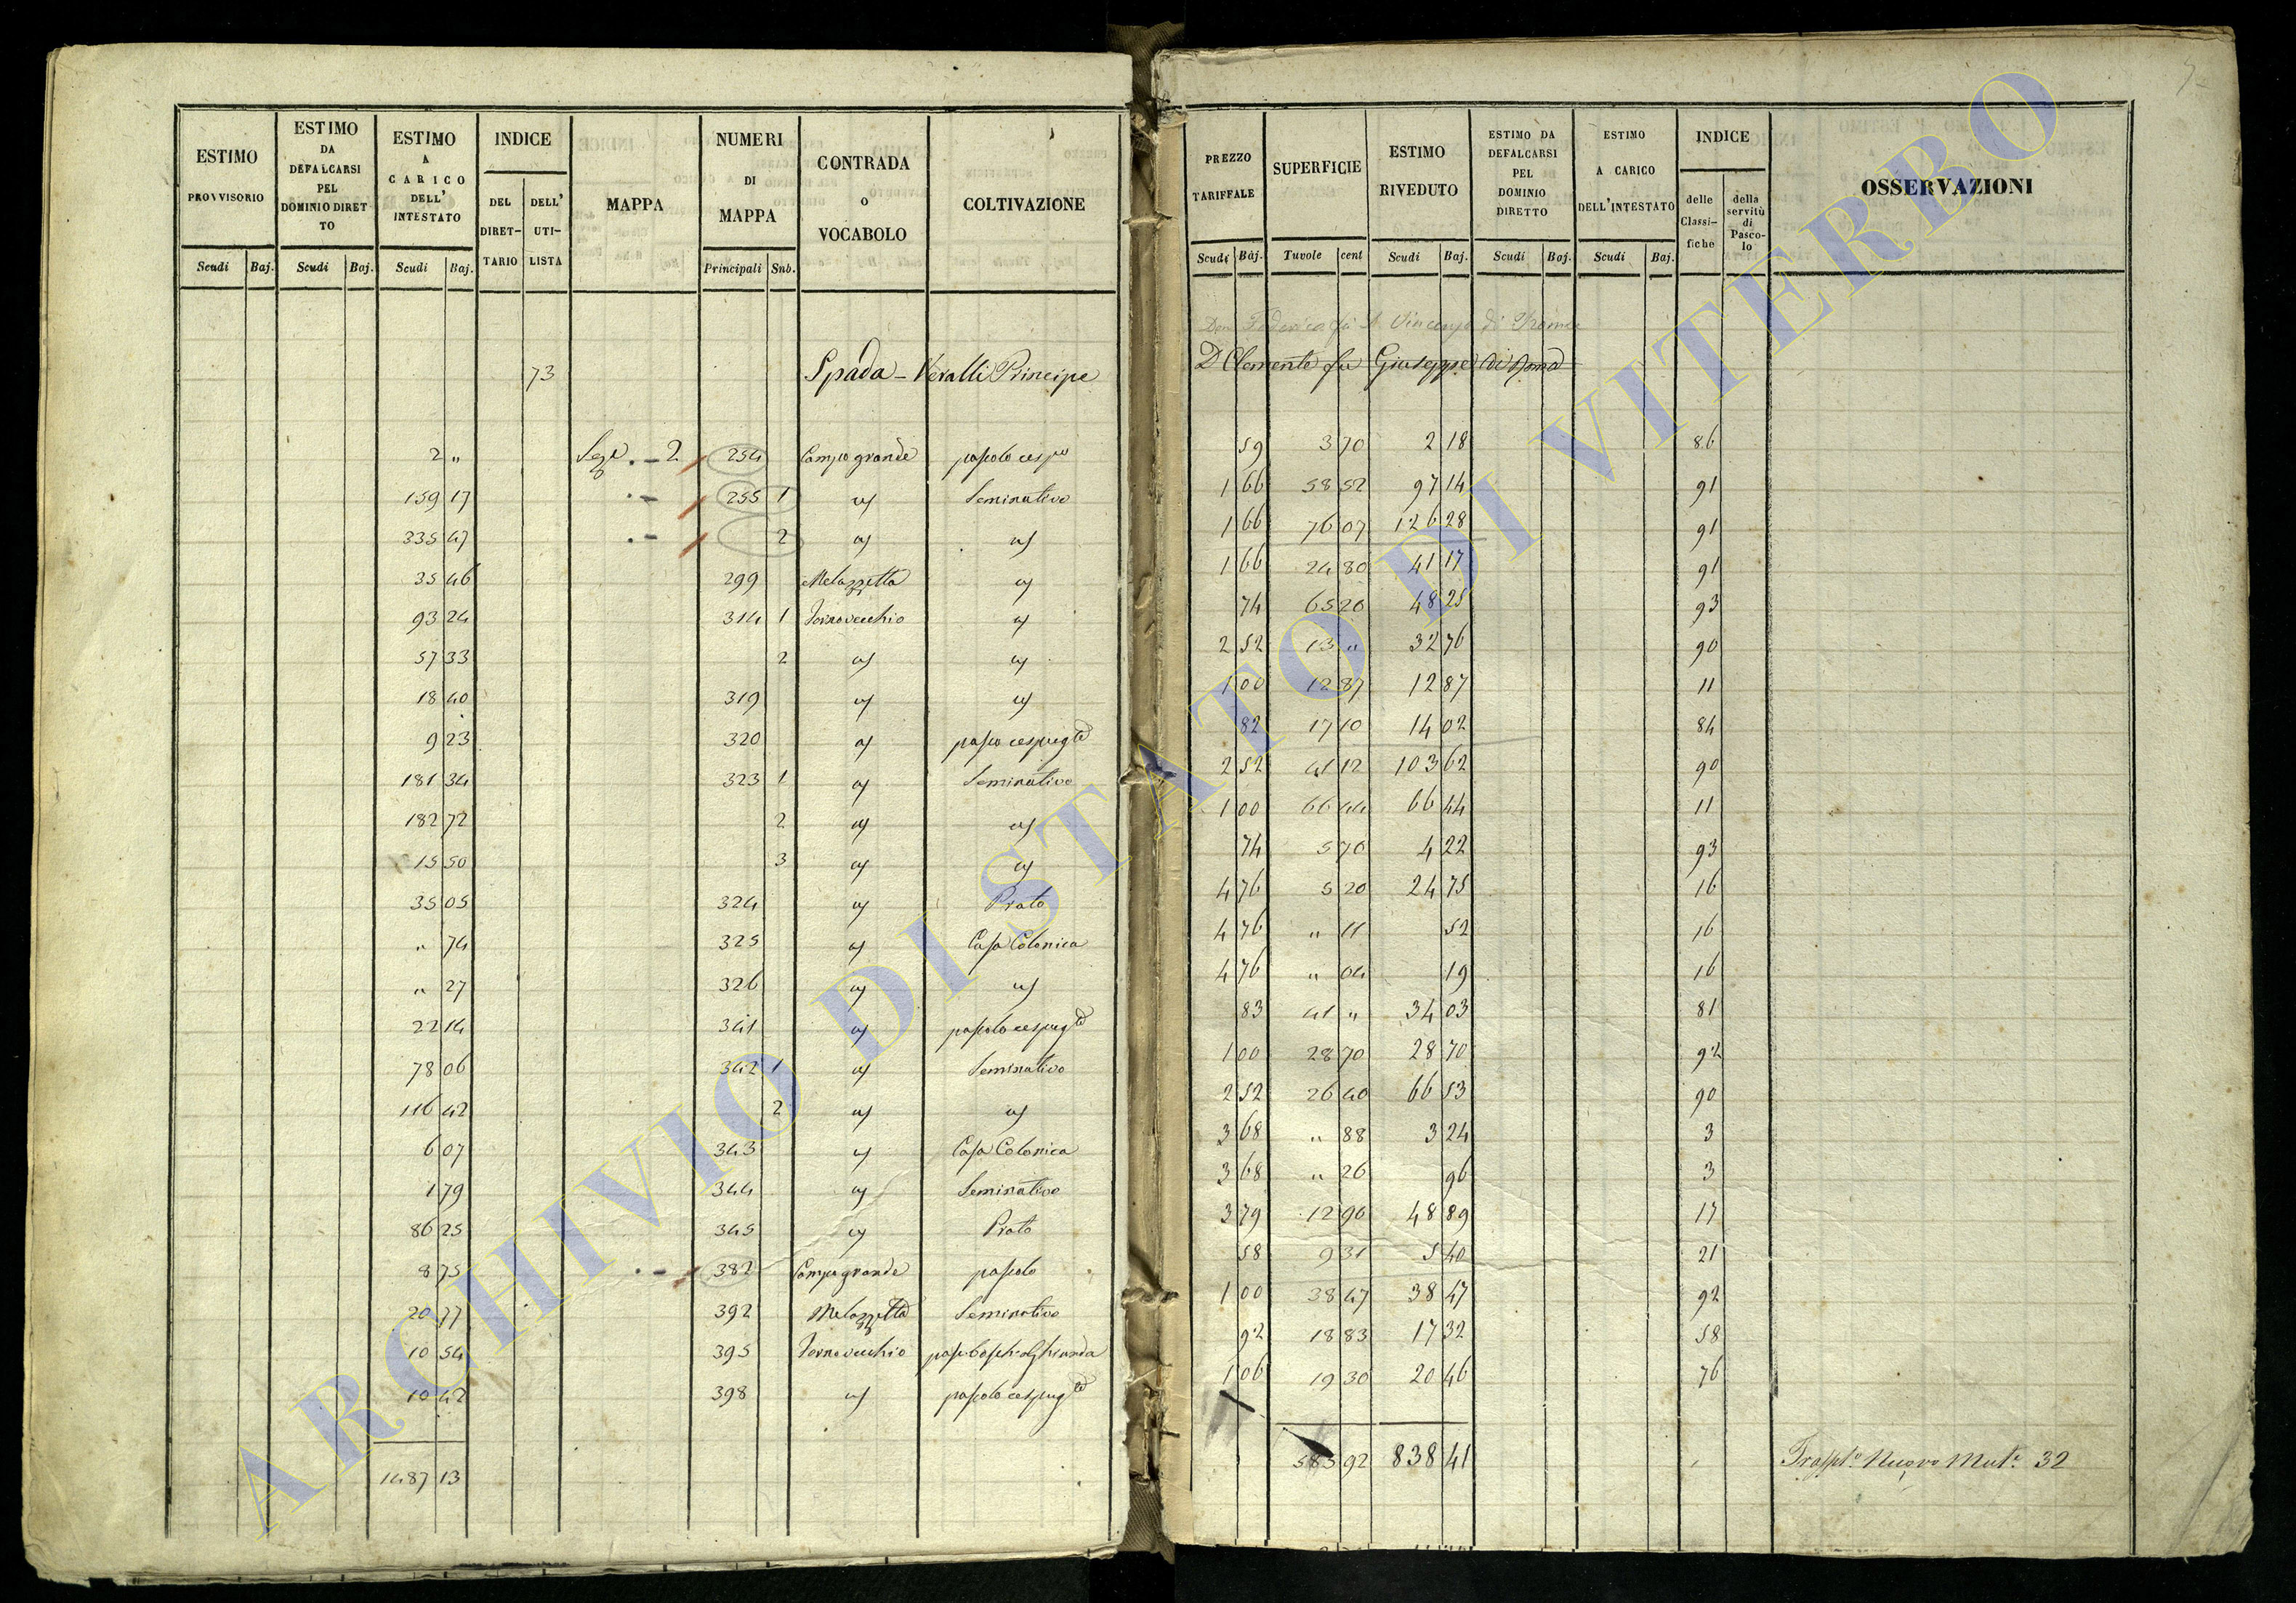 ESTIMO PROVVISORIO
ESTIMO DA DEFALCARSI PEL DOMINIO DIRETTO
ESTIMO A CARICO DELL' INTESTATO
INDICE
DEL DIRETTARIO
DELL' UTILISTA
MAPPA
NUMERI DI MAPPA
CONTRADA O VOCABOLO
COLTIVAZIONE
Scudi Baj. Scudi Baj. Scudi Baj. Principali Sub.
73 Spada - Veralli Principe
2 „ Sez.e - 2 254 Campo grande pascolo cesp.o
159 17 255 1 id Seminativo
335 47 2 id id
35 46 299 Melazzetta id
93 24 314 1 Fornovecchio id
57 33 2 id id
18 40 319 id id
9 23 320 id pasco cespugto
181 34 323 1 id Seminativo
182 72 2 id id
15 50 3 id id
35 05 324 id Prato
„ 74 325 id Casa Colonica
„ 27 326 id id
22 14 341 id pascolo cespugto
78 06 342 1 id Seminativo
116 42 2 id id
6 07 343 id Casa Colonica
1 79 344 id Seminativo
86 25 345 id Prato
8 75 382 Campogrande pascolo
20 77 392 Melazzetta Seminativo
10 54 395 Fornovecchio
10 42 398 id pascolo cespugto
1487 13
PREZZO TARIFFALE
SUPERFICIE
ESTIMO RIVEDUTO
ESTIMO DA DEFALCARSI PEL DOMINIO DIRETTO
ESTIMO A CARICO DELL'INTESTATO
INDICE
delle Classifiche
della servitù di Pascolo
OSSERVAZIONI
Scudi Baj. Tavole cent Scudi Baj. Scudi Baj. Scudi Baj.
Don Federico fu Vincenzo di Roma
D Clemente fu Giuseppe di Roma
59 3 70 2 18 86
1 66 58 52 97 14 91
1 66 76 07 126 28 91
1 66 24 80 41 17 91
74 65 20 48 25 93
2 52 13 „ 32 76 90
1 00 12 87 12 87 11
82 17 10 14 02 84
2 52 41 12 103 62 90
1 00 66 44 66 44 11
74 5 70 4 22 93
4 76 5 20 24 75 16
4 76 „ 11 52 16
4 76 „ 04 19 16
83 41 „ 34 03 81
1 00 28 70 28 70 92
2 52 26 40 66 53 90
3 68 „ 88 3 24 3
3 68 „ 26 96 3
3 79 12 90 48 89 17
58 9 31 5 40 21
1 00 38 47 38 47 92
92 18 83 17 32 58
1 06 19 30 20 46 76
583 92 838 41 Traspto Nuovo Mut. 32
ARCHIVIO DI STATO DI VITERBO